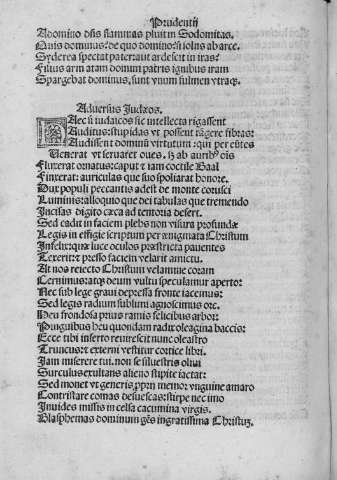 Prudentij
A domino dñs flammas pluit in Sodomitas.
Quis dominus? de quo domino? si solus ab arce.
Syderea spectat pater: aut ardescit in iras?
Filius armatam domini patris ignibus iram
Spargebat dominus, sunt vnum fulmen vtraqꝫ.
Aduersus Judæos.
Hæc si iudaicos sic intellecta rigassent
Auditus: stupidas vt possent tãgere fibras:
Audissent dominũ virtutum: qui per cũtes
Venerat vt seruaret oues, sꝫ ab auribꝰ oĩs
Fluxerat ornatus: caput & iam coctile Baal
Finxerat: auriculas que suo spoliarat honore.
Dux populi peccantis adest de monte corusci
Luminis: alloquio que dei tabulas que tremendo
Incisas digito cæca ad tentoria defert.
Sed cadit in faciem plebs non visura profundæ
Legis in effigie scriptum per ænigmata Christum
Infelix: quæ luce oculos præstricta pauentes
Texerit: & presso faciem velarit amictu.
At nos reiecto Christum velamine coram
Cernimus: atqꝫ deum vultu speculamur aperto:
Nec sub lege graui depressa fronte iacemus:
Sed legis radium sublimi agnoscimus ore.
Heu frondosa prius ramis felicibus arbor:
Pinguibus heu quondam radix oleagina baccis:
Ecce tibi inserto reuirescit nunc oleastro
Truncus: & externi vestitur cortice libri.
Jam miserere tui. non se siluestris oliui
Surculus exultans alieno stipite iactat:
Sed monet vt generis ꝓprij memor: vnguine amaro
Contristare comas desuescas: stirpe nec imo
Inuides missis in celsa cacumina virgis.
Blasphemas dominum gẽs ingratissima Christuꝫ.